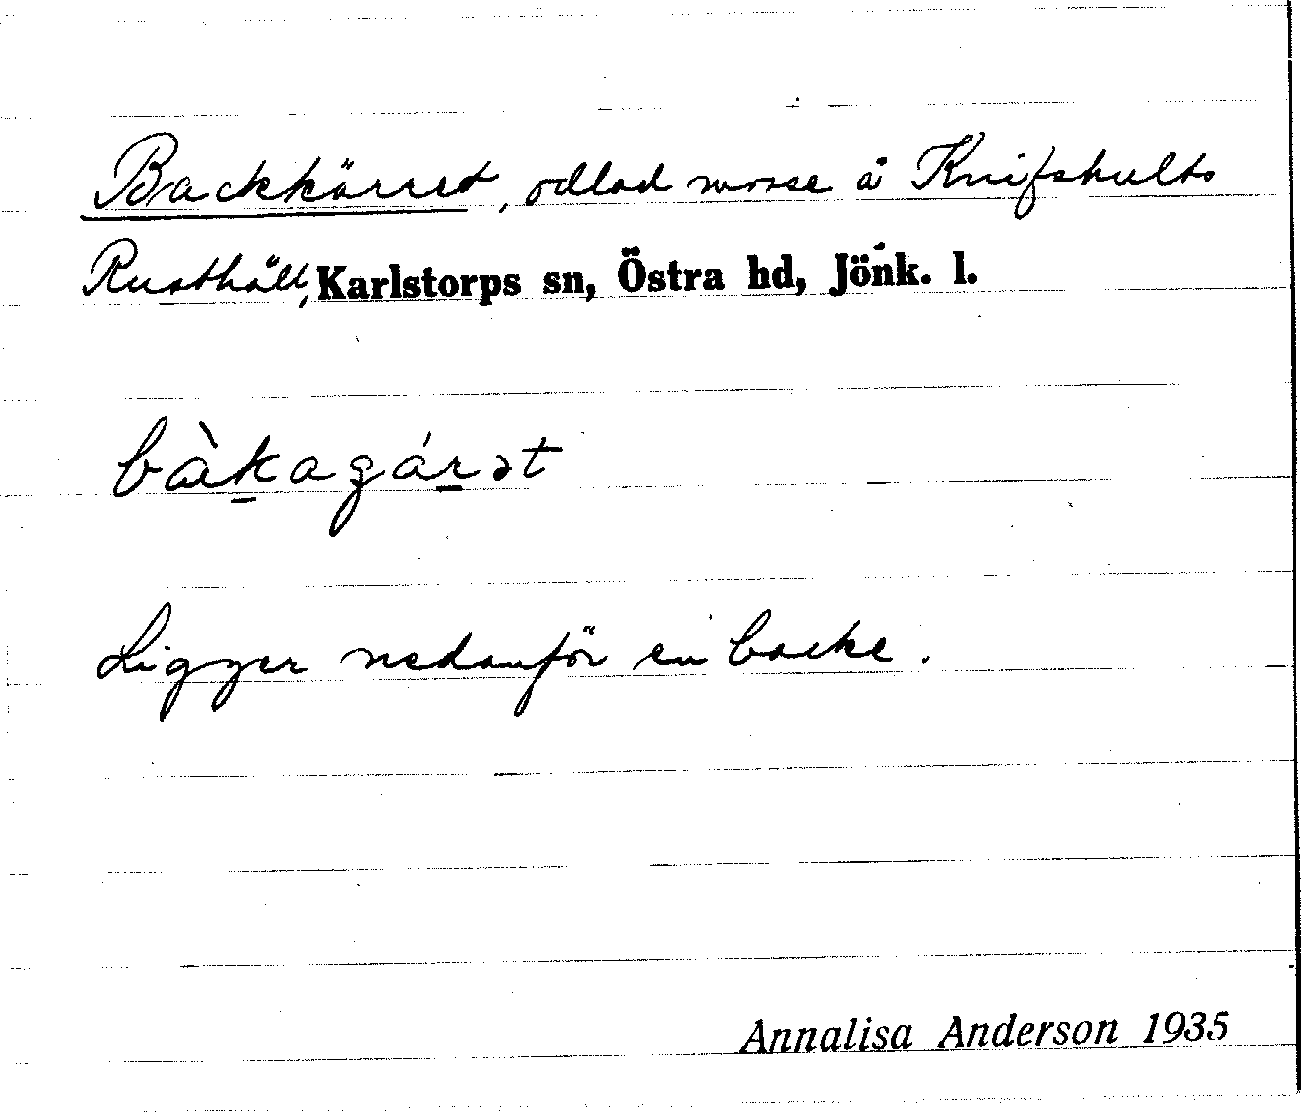 Backkärret, odlad mosse å Knifshults
Rusthåll, Karlstorps sn, Östra hd, Jönk. l.
bàkagárət
Ligger nedanför en backe.
Annalisa Anderson 1935